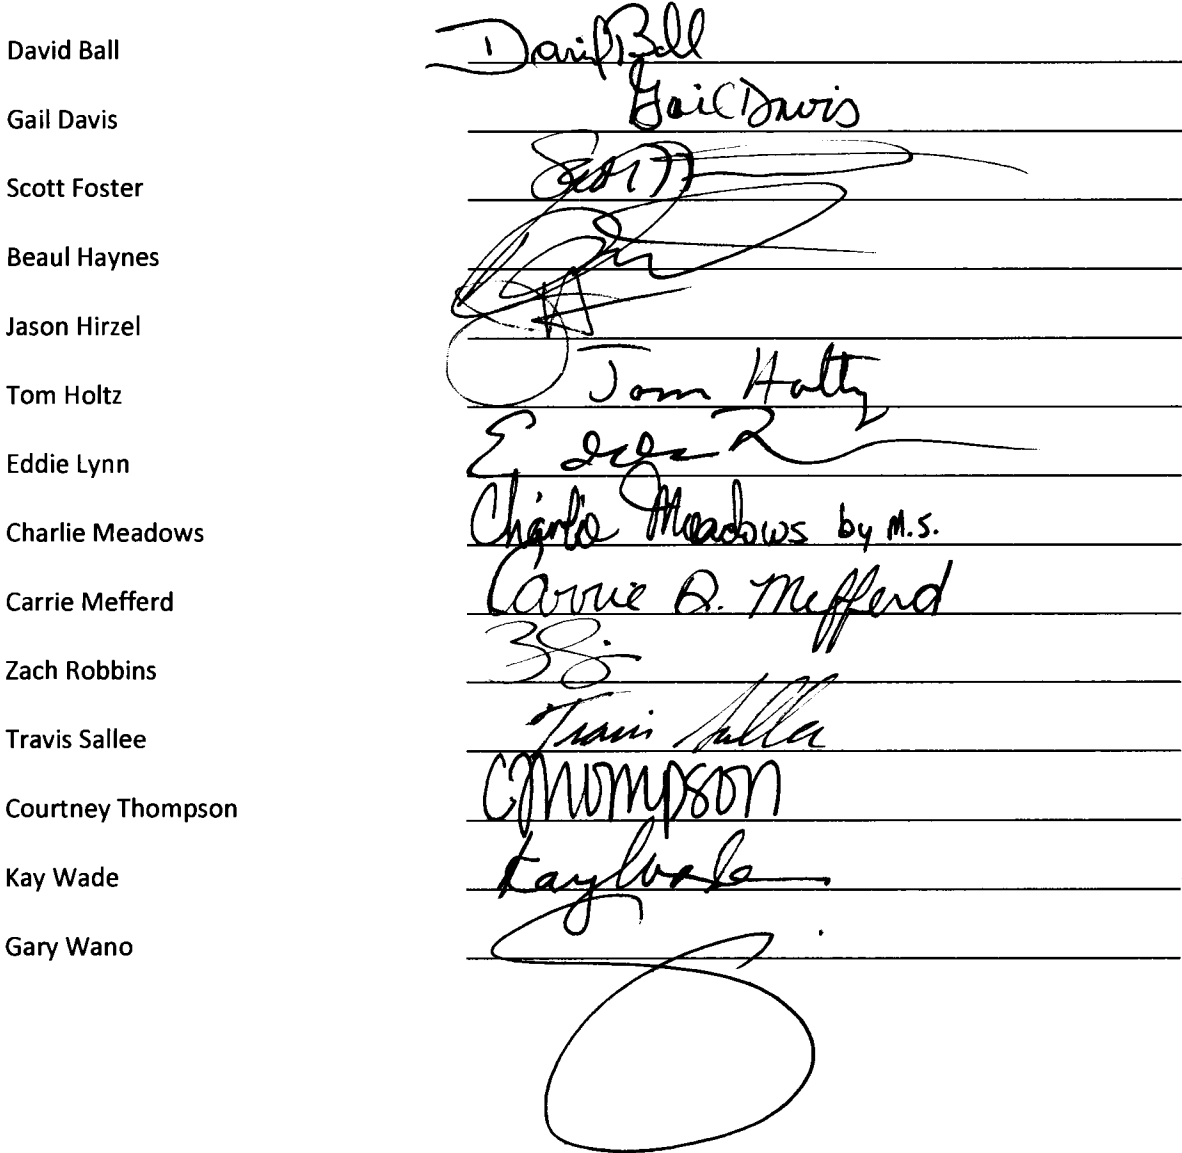 David Ball David Ball
Gail Davis Gail Davis
Scott Foster Scott
Beaul Haynes
Jason Hirzel
Tom Holtz Tom Holtz
Eddie Lynn
Charlie Meadows Charlie Meadows by M.S.
Carrie Mefferd Carrie Q. Mefferd
Zach Robbins
Travis Sallee Travis Sallee
Courtney Thompson CThompson
Kay Wade Kay Wade
Gary Wano